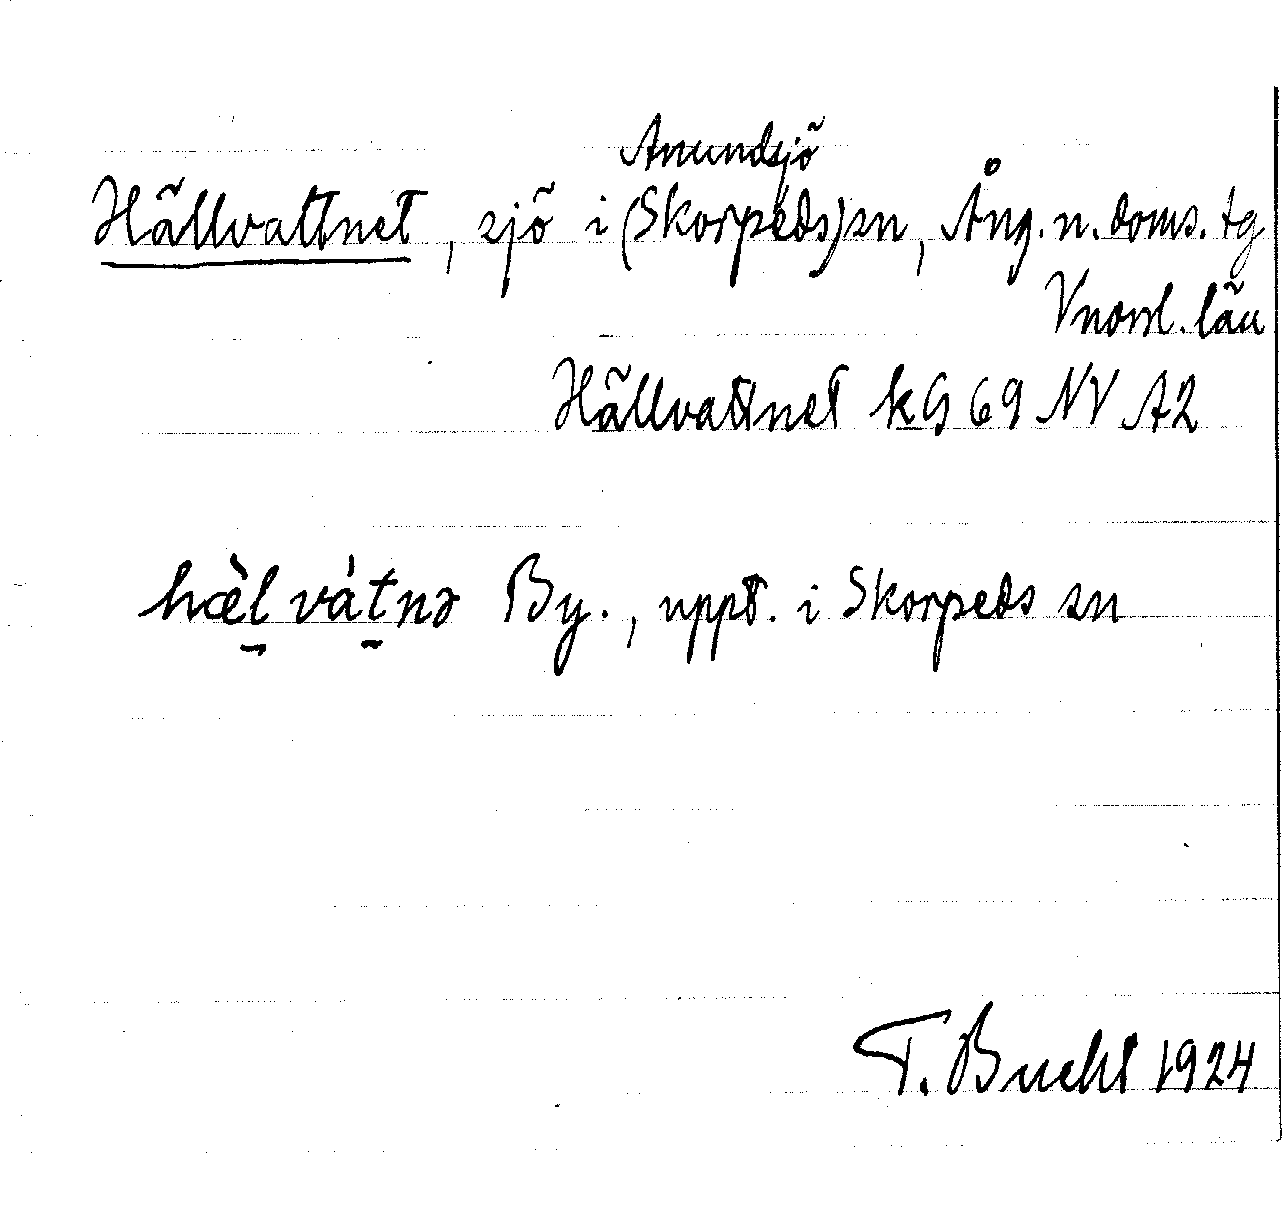 Anundsjö
Hällvattnet, sjö i (Skorpeds) sn, Ång. n. doms. tg
Vnorrl. län
Hällvattnet kG 69 NV A2
hæ̀l vátnə By., uppt. i Skorpeds sn
T. Bucht 1924